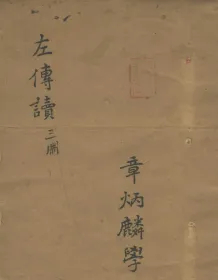 左傳讀 三冊
章炳麟學